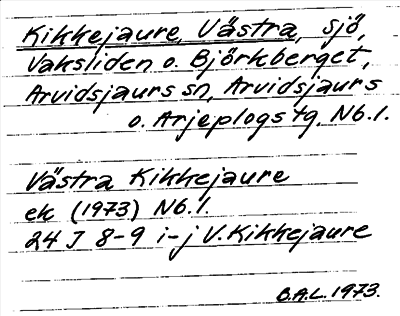 Kikkejaure, Västra, sjö,
Vaksliden o. Björkberget,
Arvidsjaurs sn, Arvidsjaurs
o. Arjeplogs tg. Nb.l.
Västra Kikkejaure
ek (1973) Nb.l.
24 J 8-9 i-j V. Kikkejaure
B.A.L. 1973.